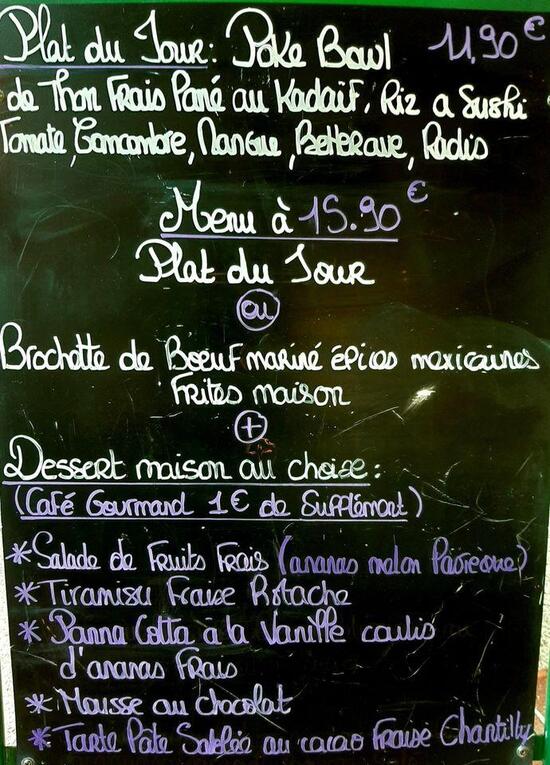 Plat du Jour: Poke Bawl 11,90€
de Thon Frais Pané au Kadaïf, Riz a Sushi
Tomate, Concombre, Mangue, Betterave, Radis
Menu à 15.90€
Plat du Jour
ou
Brochette de Boeuf mariné épices mexicaines
Frites maison
+
Dessert maison au choix:
(Café Gourmand 1€ de Supplément)
*Salade de Fruits Frais (ananas melon Pastèque)
*Tiramisu Fraise Pistache
*Panna Cotta à la Vanille coulis
d'ananas Frais
*Mousse au chocolat
*Tarte Pâte Sablée au cacao Fraise Chantilly